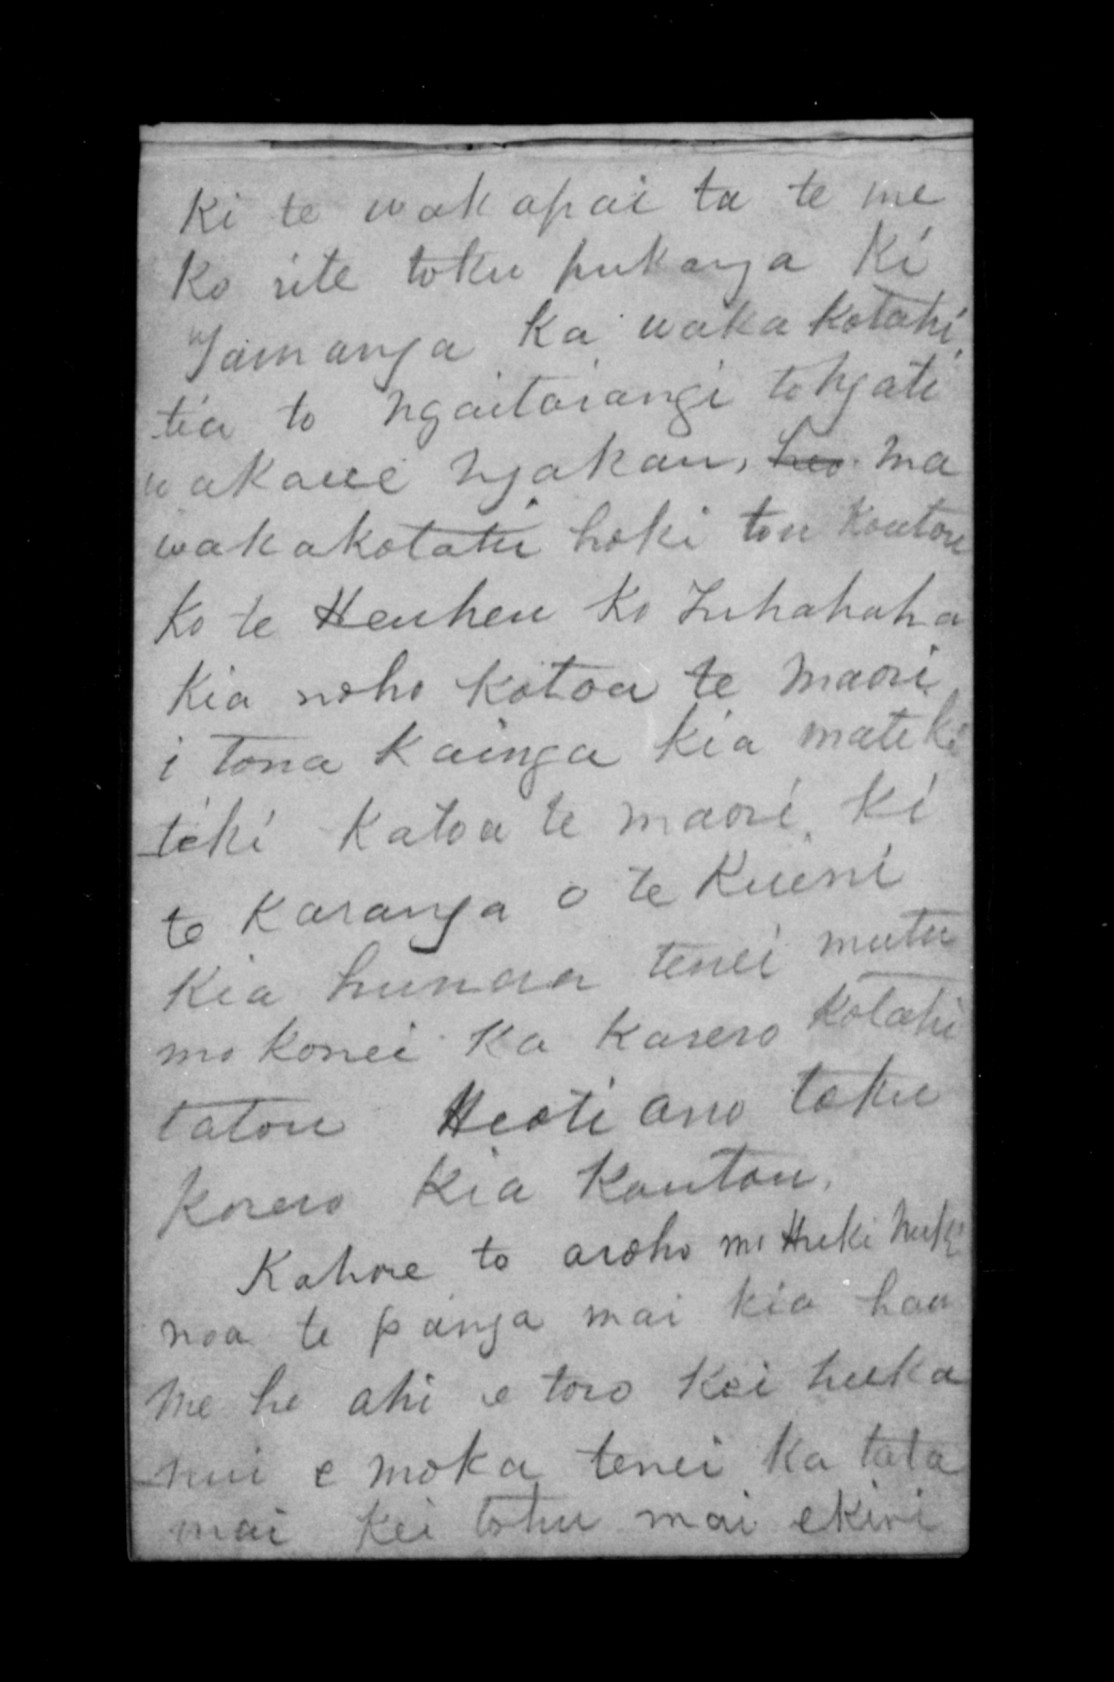 Ki te wakapai ta te me
Ko rite toku pukanga Ki
Tauranga Ka wakakotahi
tia to Ngaitaiangi to Ngati
wakaue Ngakau, heo ma
wakakotatu hoki tou Koutou
Ko te Heuheu Ko Tuhahaha
Kia noho Katoa te maori
i tona Kainga kia mateki
teki Katoa te maori Ki
te Karanga o te Kuini
Kia hunaa tenei mutu
mo konei Ka Karero Kotahi
tatou Heoti ano taku
Korero Kia Koutou.
Kahore to aroho mo Huki huki
noa te panga mai kia haa
me he ahi e toro Kei huka
nui e moka tenei Ka tata
mai Kei tohu mai ekiri